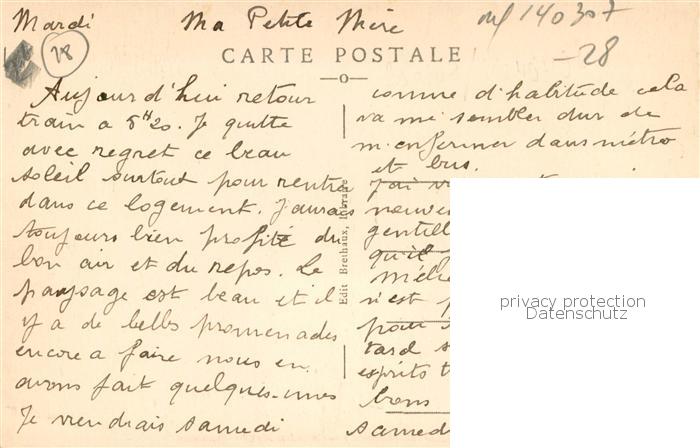 Mardi Ma Petite Mère
140307
28
-28
CARTE POSTALE
Aujourd'hui retour
train a 8H20. Je quitte
avec regret ce beau
soleil surtout pour rentrer
dans ce logement. J'aurais
toujours bien profité du
bon air et du repos. Le
paysage est beau et il
y a de belles promenades
encore a faire nous en
avons fait quelques-unes
Je viendrais samedi
Edit Brethaux, Libraire
comme d'habitude cela
va me sembler dur de
m'enfermer dans métro
et bus.
j'ai
gentill
qu'il
n'est p
pour
tard s
esprits t
bons
samed
privacy protection
Datenschutz